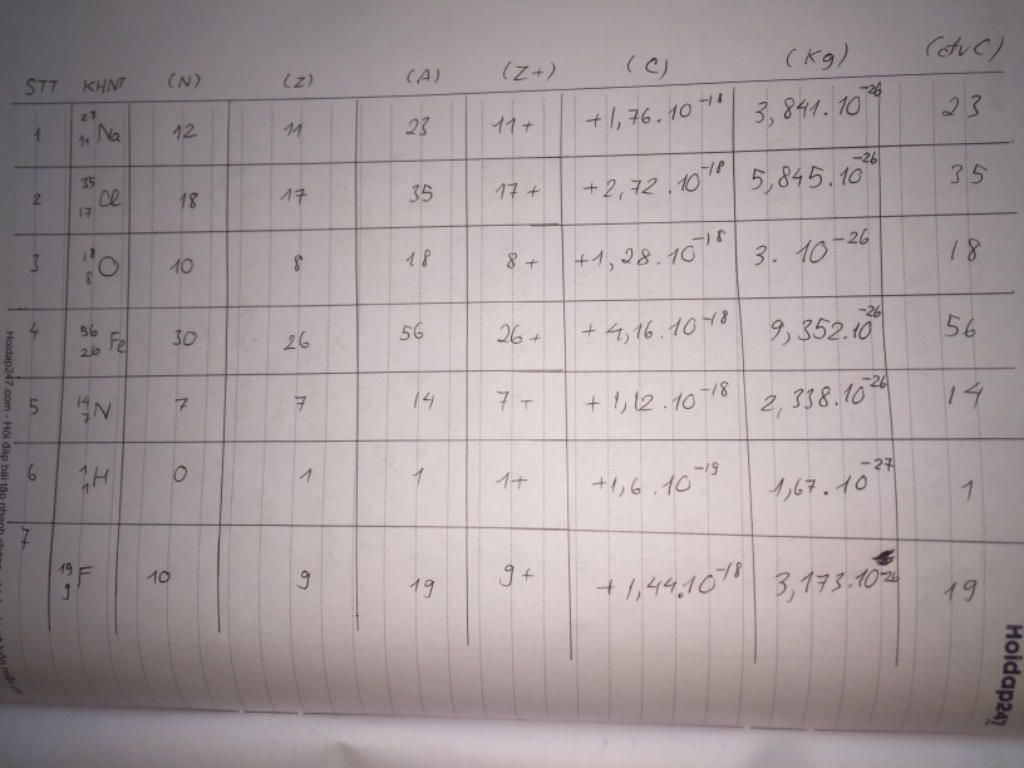 STT KHNT (N) (Z) (A) (Z+) (C) (Kg) (đvC)
1 ²³₁₁Na 12 11 23 11+ +1,76.10⁻¹⁸ 3,841.10⁻²⁶ 23
2 ³⁵₁₇Cl 18 17 35 17+ +2,72.10⁻¹⁸ 5,845.10⁻²⁶ 35
3 ¹⁸₈O 10 8 18 8+ +1,28.10⁻¹⁸ 3.10⁻²⁶ 18
4 ⁵⁶₂₆Fe 30 26 56 26+ +4,16.10⁻¹⁸ 9,352.10⁻²⁶ 56
5 ¹⁴₇N 7 7 14 7+ +1,12.10⁻¹⁸ 2,338.10⁻²⁶ 14
6 ¹₁H 0 1 1 1+ +1,6.10⁻¹⁹ 1,67.10⁻²⁷ 1
7 ¹⁹₉F 10 9 19 9+ +1,44.10⁻¹⁸ 3,173.10⁻²⁶ 19
Hoidap247.com - Hỏi đáp bài tập nhanh
Hoidap247